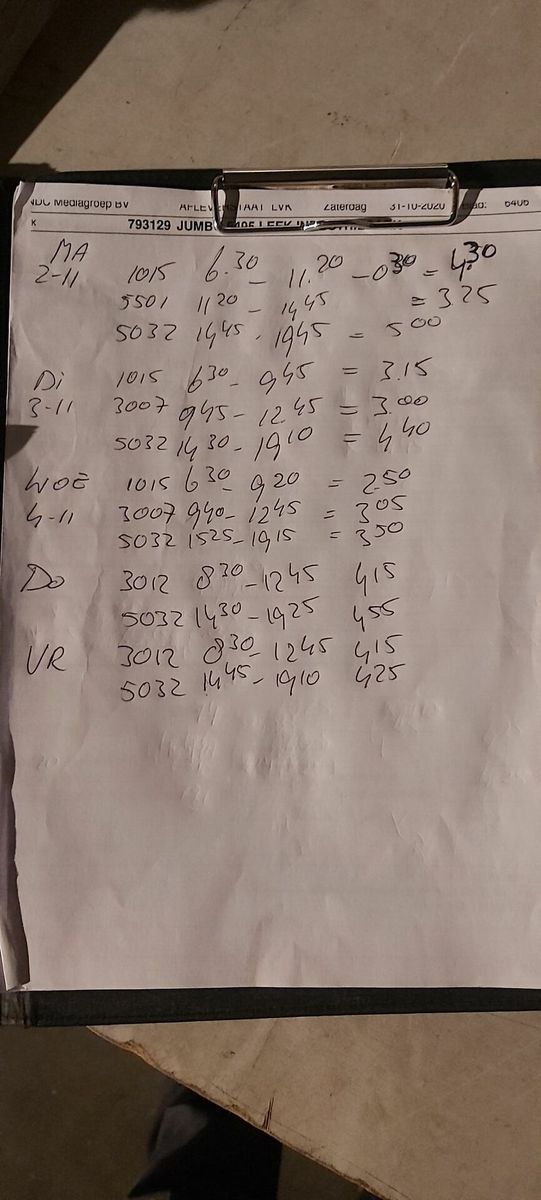 NDC Mediagroep BV AFLEVERSTAAT LVK Zaterdag 31-10-2020 6406
K 793129 JUMBO LEEK
MA
2-11 1015 6.30 - 11.20 - 030 = 4.30
5501 1120 - 1445 = 325
5032 1445 - 1945 = 500
Di 1015 630 - 945 = 3.15
3-11 3007 945 - 12.45 = 3.00
5032 1430 - 1910 = 440
WOE 1015 630 - 920 = 2.50
4-11 3007 940 - 1245 = 305
5032 1525 - 1915 = 350
Do 3012 830 - 1245 415
5032 1430 - 1925 455
VR 3012 830 - 1245 415
5032 1445 - 1910 425